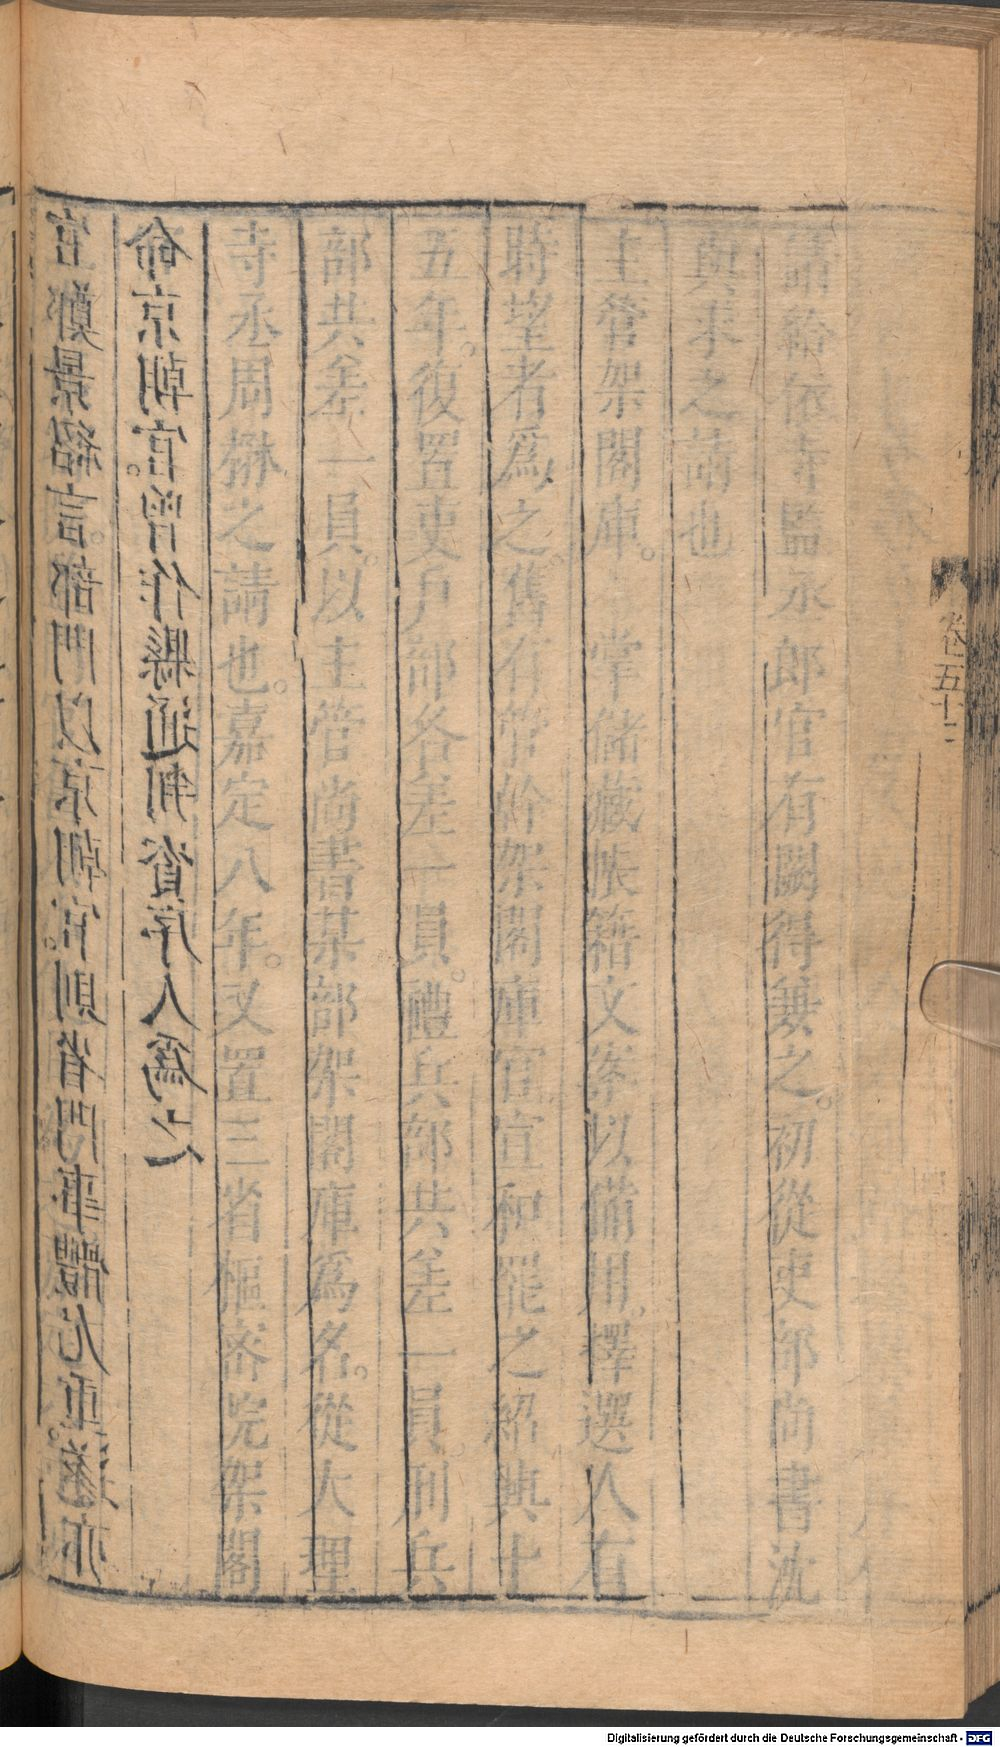 卷五十
請給依寺監丞郎官有闕得兼之。初從吏部尚書沈
與求之請也
主管架閣庫。掌儲藏帳籍文案以備用。擇選人有
時望者爲之。舊有管幹架閣庫官宣和罷之紹興十
五年。復置吏戶部各差一員。禮兵部共差一員。刑兵
部共差一員。以主管尚書某部架閣庫爲名。從大理
寺丞周楙之請也。嘉定八年。又置三省樞密院架閣
命京朝官。曾作縣通判資序人爲之
官鄭景紹言。部門以京朝官。則省門事體尤重。遂亦
Digitalisierung gefördert durch die Deutsche Forschungsgemeinschaft - DFG